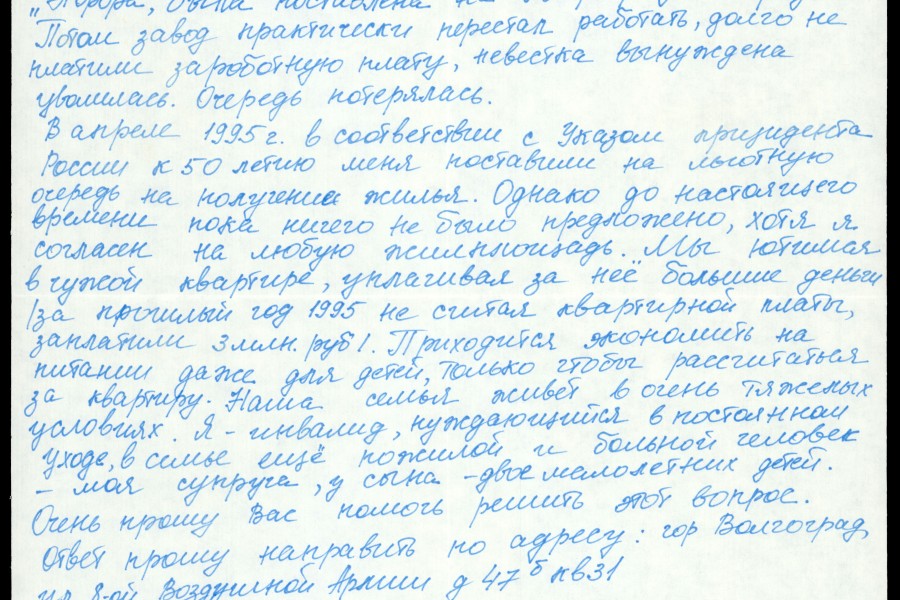 была поставлена на
Потом завод практически перестал работать, долго не
платили заработную плату, невестка вынуждена
уволилась. Очередь потерялась.
В апреле 1995 г. в соответствии с Указом призидента
России к 50 летию меня поставили на льготную
очередь на получение жилья. Однако до настоящего
времени пока ничего не было предложено, хотя я
согласен на любую жилплощадь. Мы ютимся
в чужой квартире, уплачивая за неё большие деньги
/за прошлый год 1995 не считая квартирной платы,
заплатили 3 млн. руб/. Приходится экономить на
питании даже для детей, только чтобы рассчитаться
за квартиру. Наша семья живёт в очень тяжелых
условиях. Я - инвалид, нуждающийся в постоянном
уходе, в семье ещё пожилой и больной человек
- моя супруга, у сына - двое малолетних детей.
Очень прошу Вас помочь решить этот вопрос.
Ответ прошу направить по адресу: гор Волгоград,
ул 8-ой Воздушной Армии д 47 б кв 31